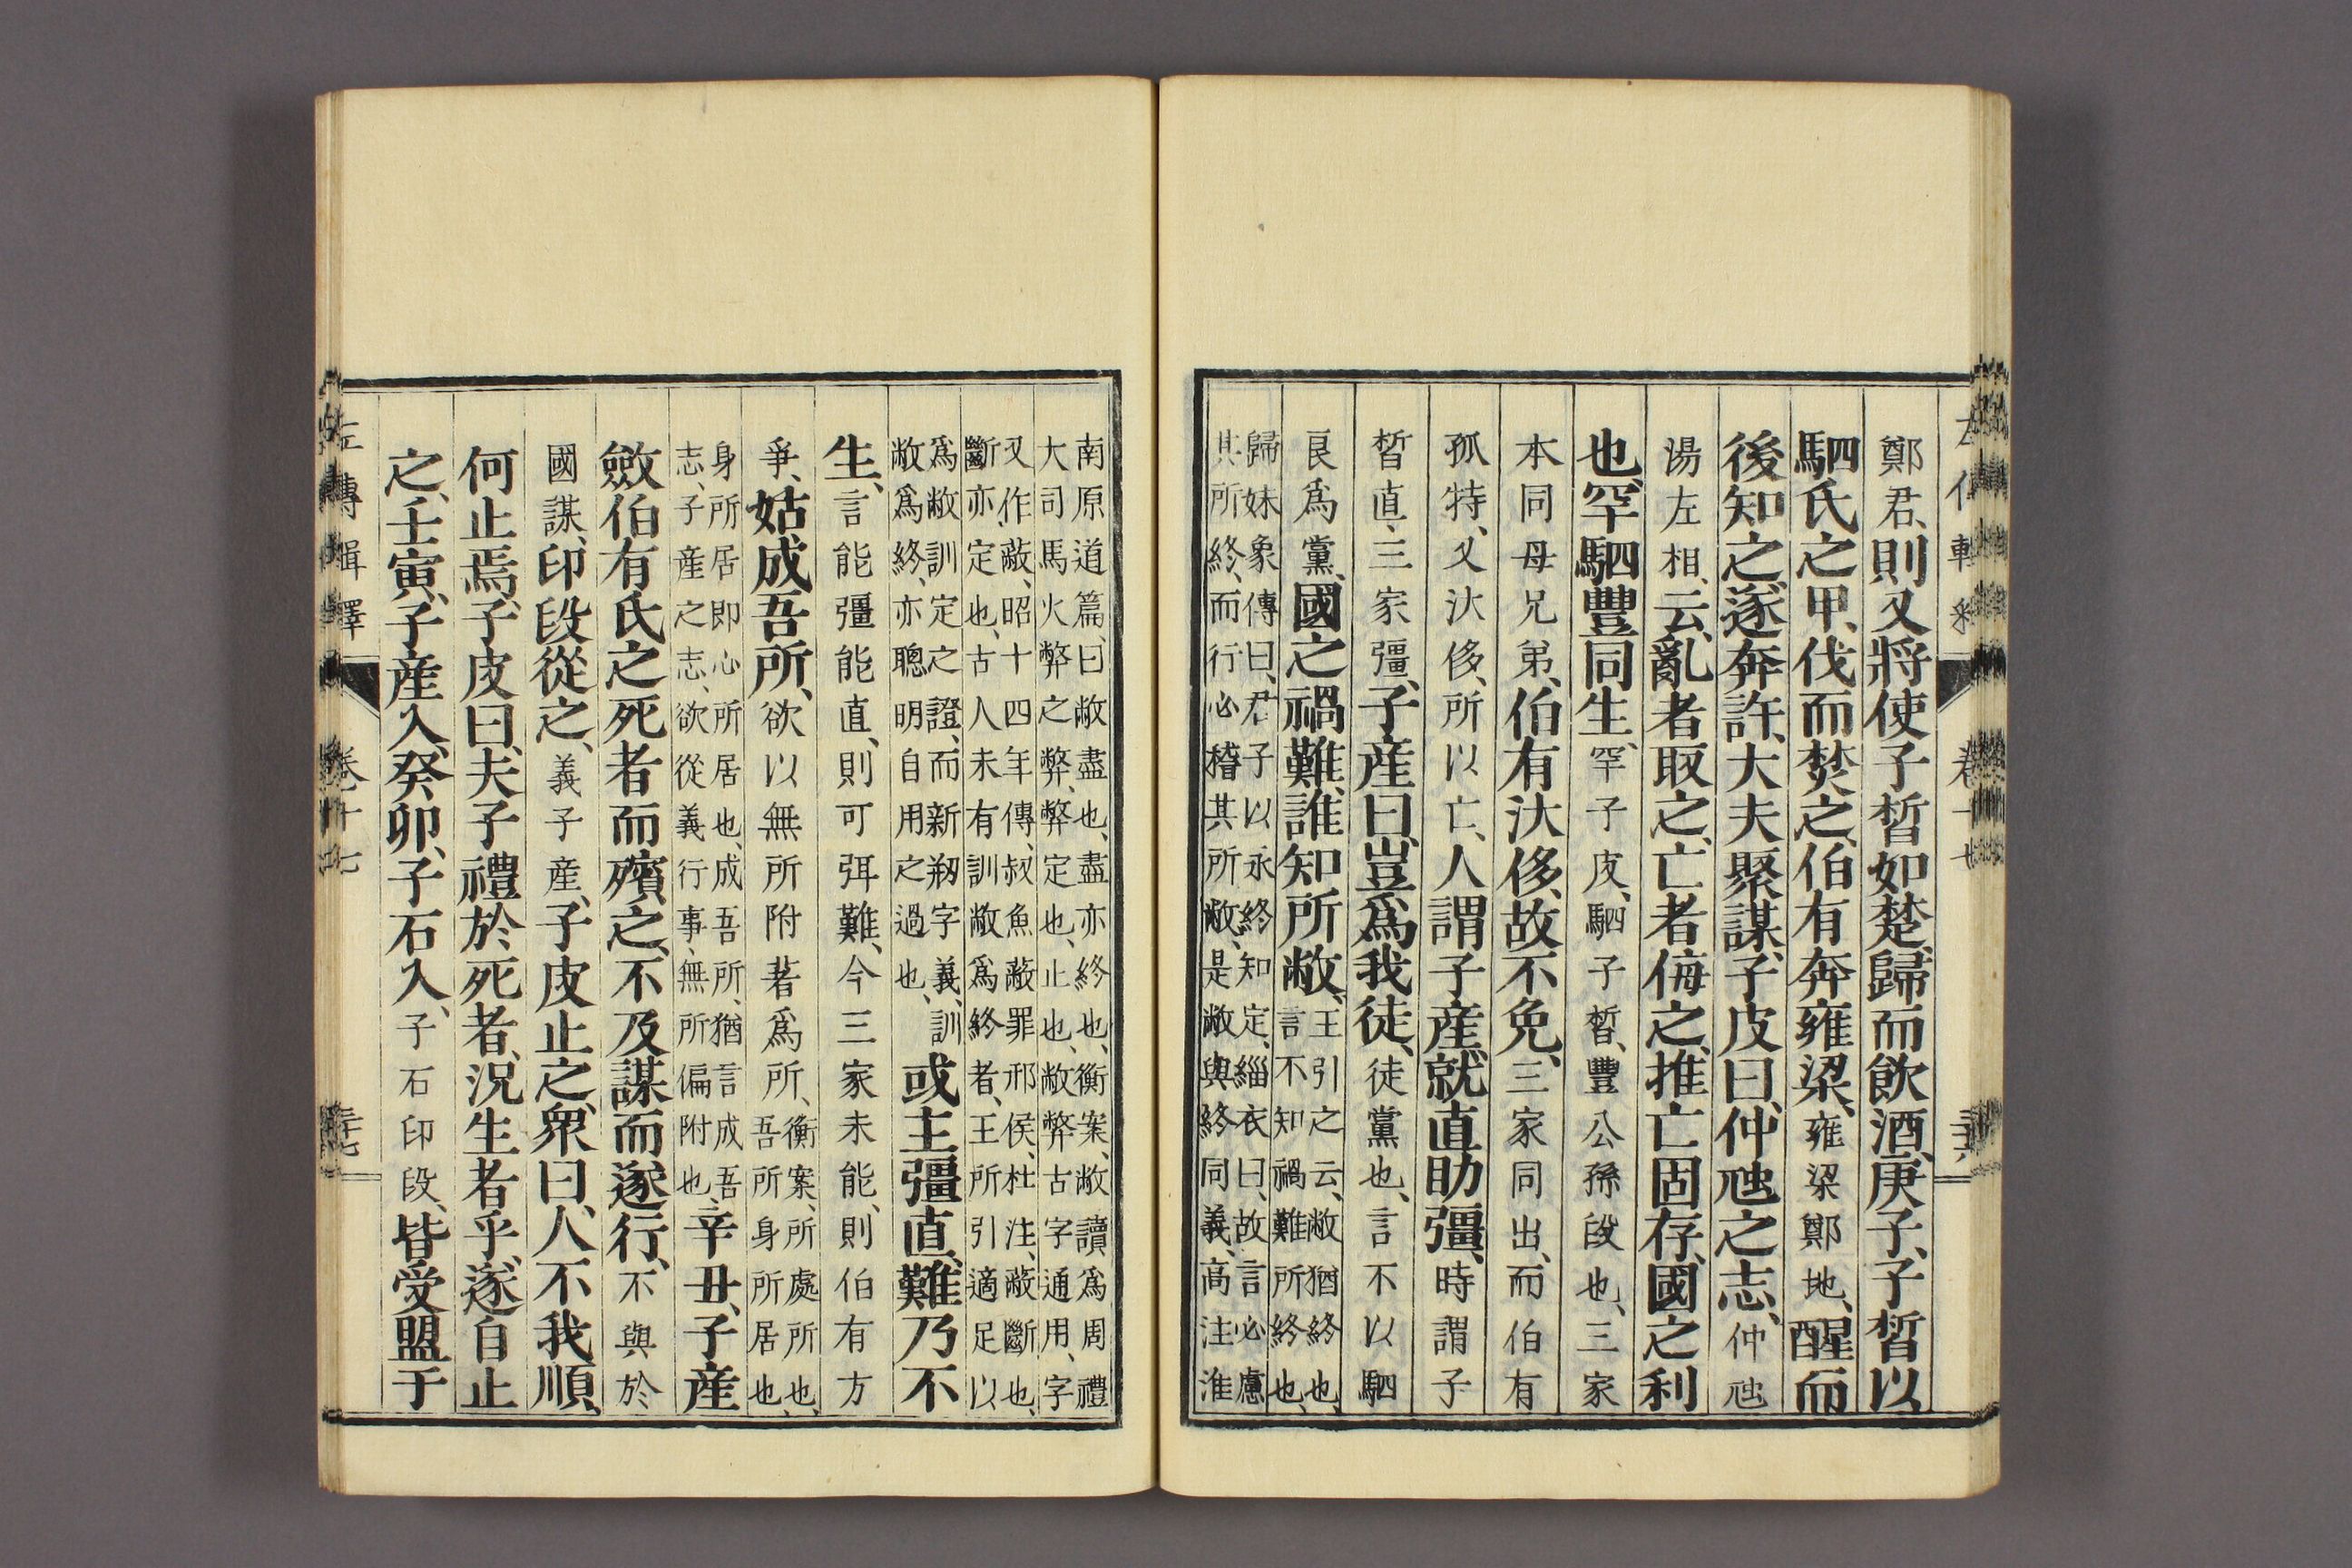 鄭君、則又將使子晳如楚、歸而飲酒、庚子、子晳以
駟氏之甲、伐而焚之、伯有奔雍梁、雍梁鄭地、醒而
後知之、遂奔許、大夫聚謀、子皮曰、仲虺之志、仲虺
湯左相、云、亂者取之、亡者侮之、推亡固存、國之利
也、罕駟豐同生、罕子皮、駟子晳、豐公孫段也、三家
本同母兄弟、伯有汏侈、故不免、三家同出、而伯有
孤特、又汏侈、所以亡、人謂子產就直助彊、時謂子
晳直、三家彊、子產曰、豈爲我徒、徒黨也、言不以駟
良爲黨、國之禍難、誰知所敝、王引之云、敝猶終也、
言不知禍難所終也、
歸妹象傳曰、君子以永終知定、緇衣曰、故言必慮
其所終、而行必稽其所敝、是敝與終同義、高注淮
南原道篇、曰敝盡也、盡亦終也、衡案、敝讀爲周禮
大司馬火弊之弊、弊定也、止也、敝弊古字通用、字
又作蔽、昭十四年傳、叔魚蔽罪邢侯、杜注、蔽斷也、
斷亦定也、古人未有訓敝爲終者、王所引適足以
爲敝訓定之證、而新剏字義、訓
敝爲終、亦聰明自用之過也、
或主彊直、難乃不
生、言能彊能直、則可弭難、今三家未能、則伯有方
爭、姑成吾所、欲以無所附著爲所、衡案、所處所也、
吾所身所居也
身所居即心所居也、成吾所、猶言成吾
志、子產之志、欲從義行事、無所偏附也、
辛丑、子產
斂伯有氏之死者而殯之、不及謀而遂行、不與於
國謀、印段從之、義子產、子皮止之、衆曰、人不我順、
何止焉、子皮曰、夫子禮於死者、況生者乎、遂自止
之、壬寅、子產入、癸卯、子石入、子石印段、皆受盟于
左傳輯釋
卷十七